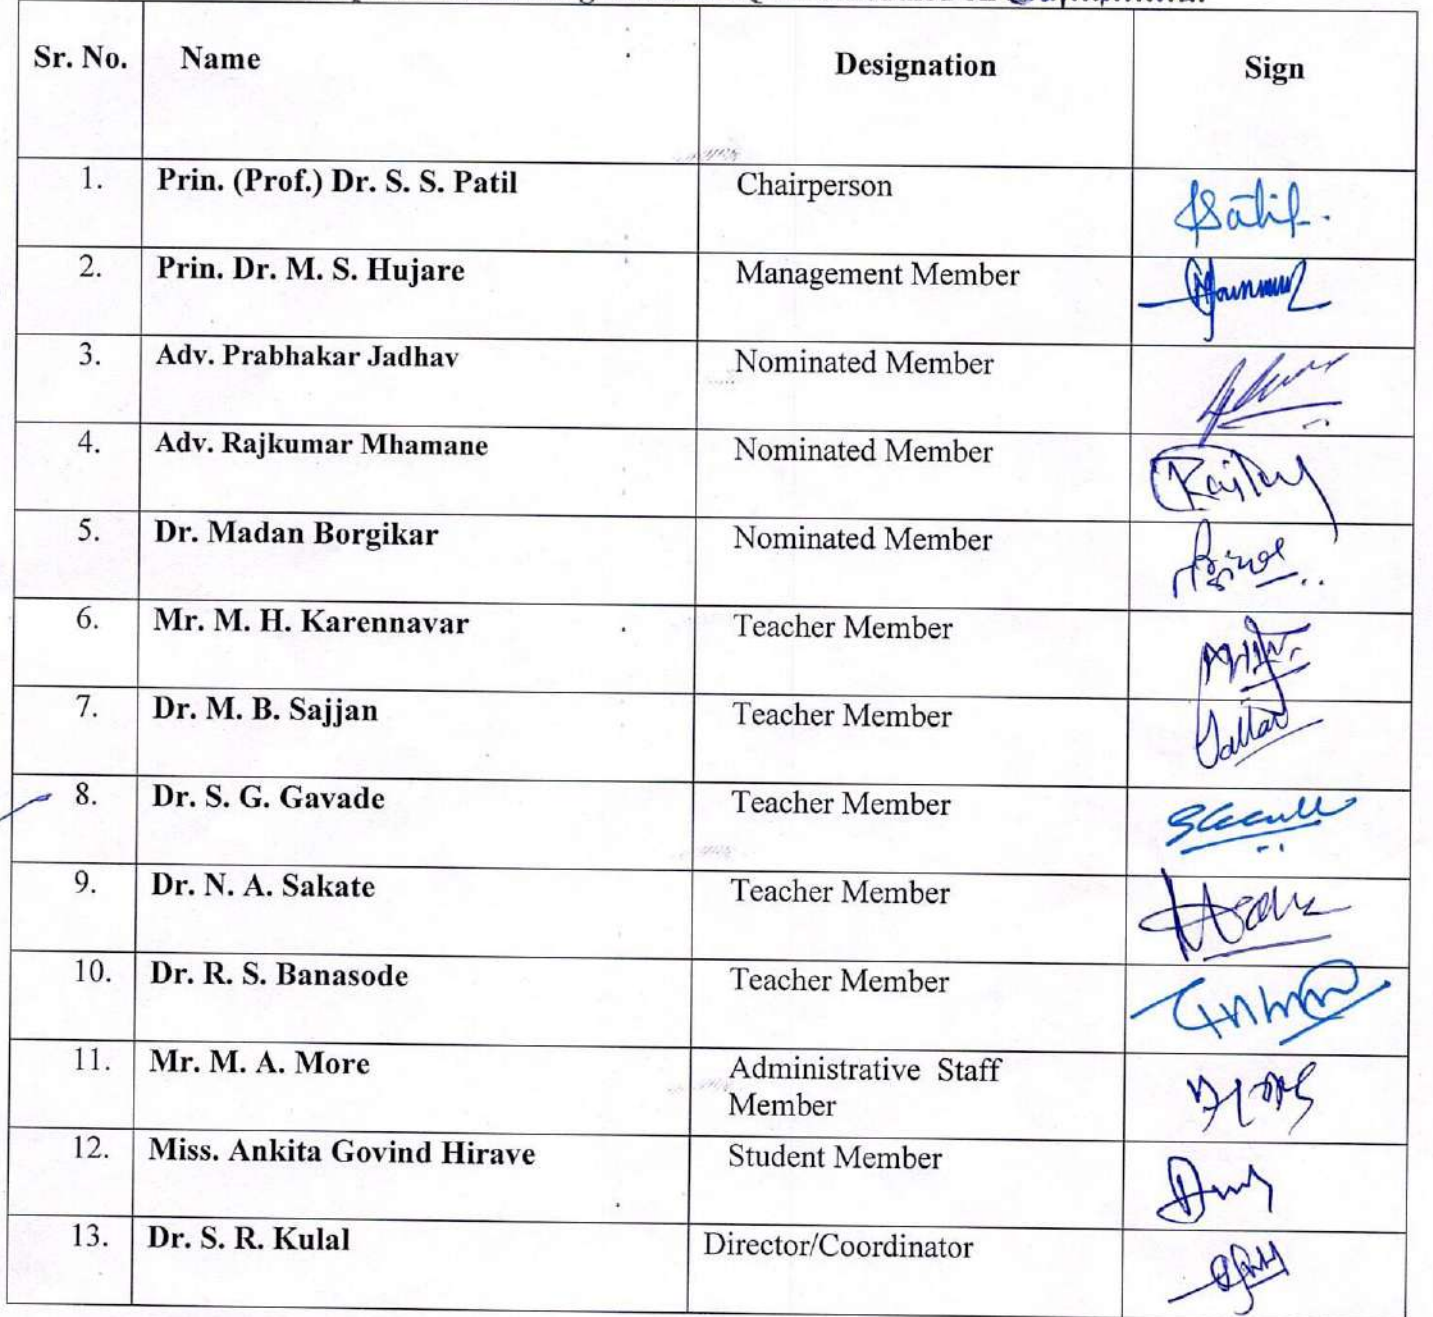 Sr. No. Name Designation Sign
1. Prin. (Prof.) Dr. S. S. Patil Chairperson
2. Prin. Dr. M. S. Hujare Management Member
3. Adv. Prabhakar Jadhav Nominated Member
4. Adv. Rajkumar Mhamane Nominated Member
5. Dr. Madan Borgikar Nominated Member
6. Mr. M. H. Karennavar Teacher Member
7. Dr. M. B. Sajjan Teacher Member
8. Dr. S. G. Gavade Teacher Member
9. Dr. N. A. Sakate Teacher Member
10. Dr. R. S. Banasode Teacher Member
11. Mr. M. A. More Administrative Staff
Member
12. Miss. Ankita Govind Hirave Student Member
13. Dr. S. R. Kulal Director/Coordinator